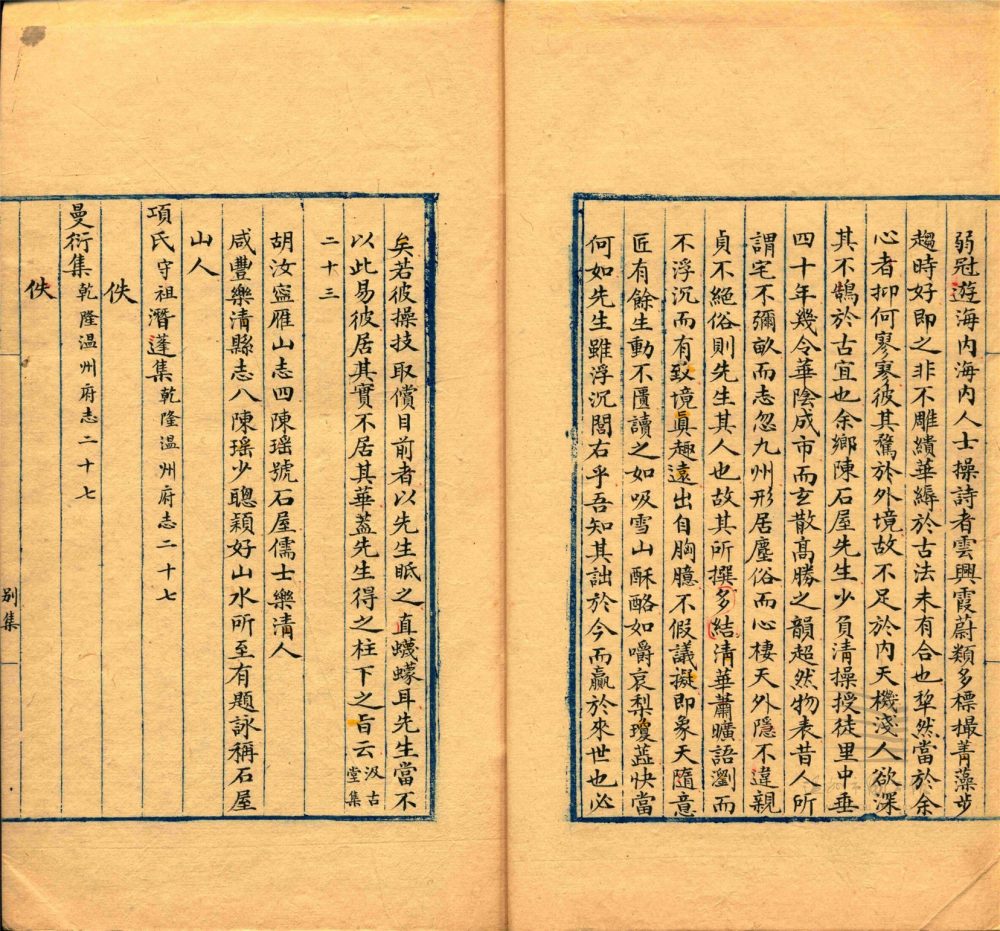 弱冠遊海内海内人士操詩者雲興霞蔚類多標撮菁藻步
趨時好即之非不雕繢華縟於古法未有合也犂然當於余
心者抑何寥寥彼其騖於外境故不足於内天機淺人欲深
其不鵠於古宜也余鄉陳石屋先生少負清操授徒里中垂
四十年幾令華陰成市而玄散高勝之韻超然物表昔人所
謂宅不彌畝而志忽九州形居塵俗而心棲天外隱不違親
貞不絕俗則先生其人也故其所撰多結清華蕭曠語瀏而
不浮沉而有致境真趣遠出自胸臆不假議擬即象天隨意
匠有餘生動不匱讀之如吸雪山酥酪如嚼哀梨瓊蘂快當
何如先生雖浮沉閭右乎吾知其詘於今而贏於來世也必
矣若彼操技取償目前者以先生眂之直蠛蠓耳先生當不
以此易彼居其實不居其華蓋先生得之柱下之旨云汲古堂集
二十三
胡汝寧雁山志四陳瑶號石屋儒士樂清人
咸豐樂清縣志八陳瑶少聰穎好山水所至有題詠稱石屋
山人
項氏守祖潛蓬集乾隆温州府志二十七
佚
曼衍集乾隆温州府志二十七
佚
別集